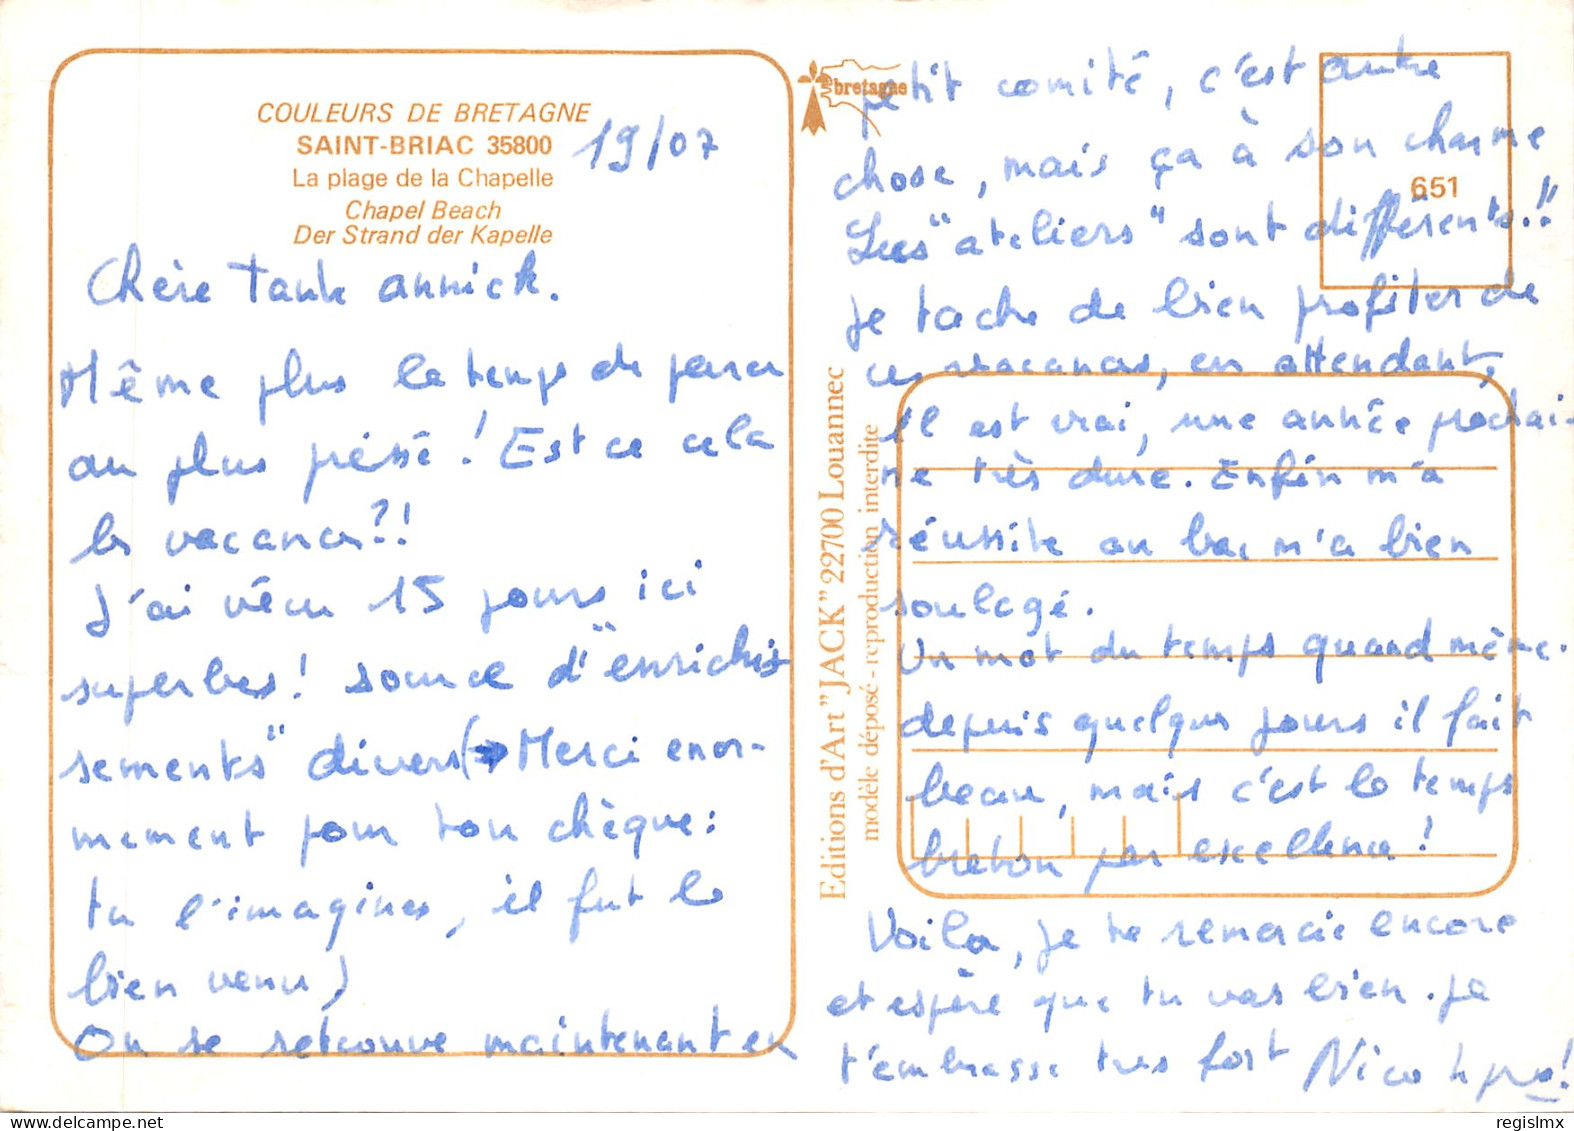 COULEURS DE BRETAGNE
SAINT-BRIAC 35800
La plage de la Chapelle
Chapel Beach
Der Strand der Kapelle
19/07
Chère Tante Annick.
Même plus le temps de penser
au plus pressé ! Est ce cela
les vacances ?!
J'ai vécu 15 jours ici
superbes ! source d' "enrichis
sements" divers (→ Merci enor-
mement pour ton chèque :
tu l'imagines, il fut le
bien venu)
On se retrouve maintenant en
bretagne
petit comité, c'est autre
chose, mais ça à son charme
651
Les "ateliers" sont différents..!!
je tache de bien profiter de
ces vacances, en attendant,
il est vrai, une année prochai-
ne très dure. Enfin m'a
réussite au bac m'a bien
soulagé.
Un mot du temps quand même.
depuis quelques jours il fait
beau, mais c'est le temps
breton par excellence !
Voila, je te remercie encore
et espère que tu vas bien. Je
t'embrasse très fort Nico
Editions d'Art "JACK" 22700 Louannec
modèle déposé - reproduction interdite
regislmx